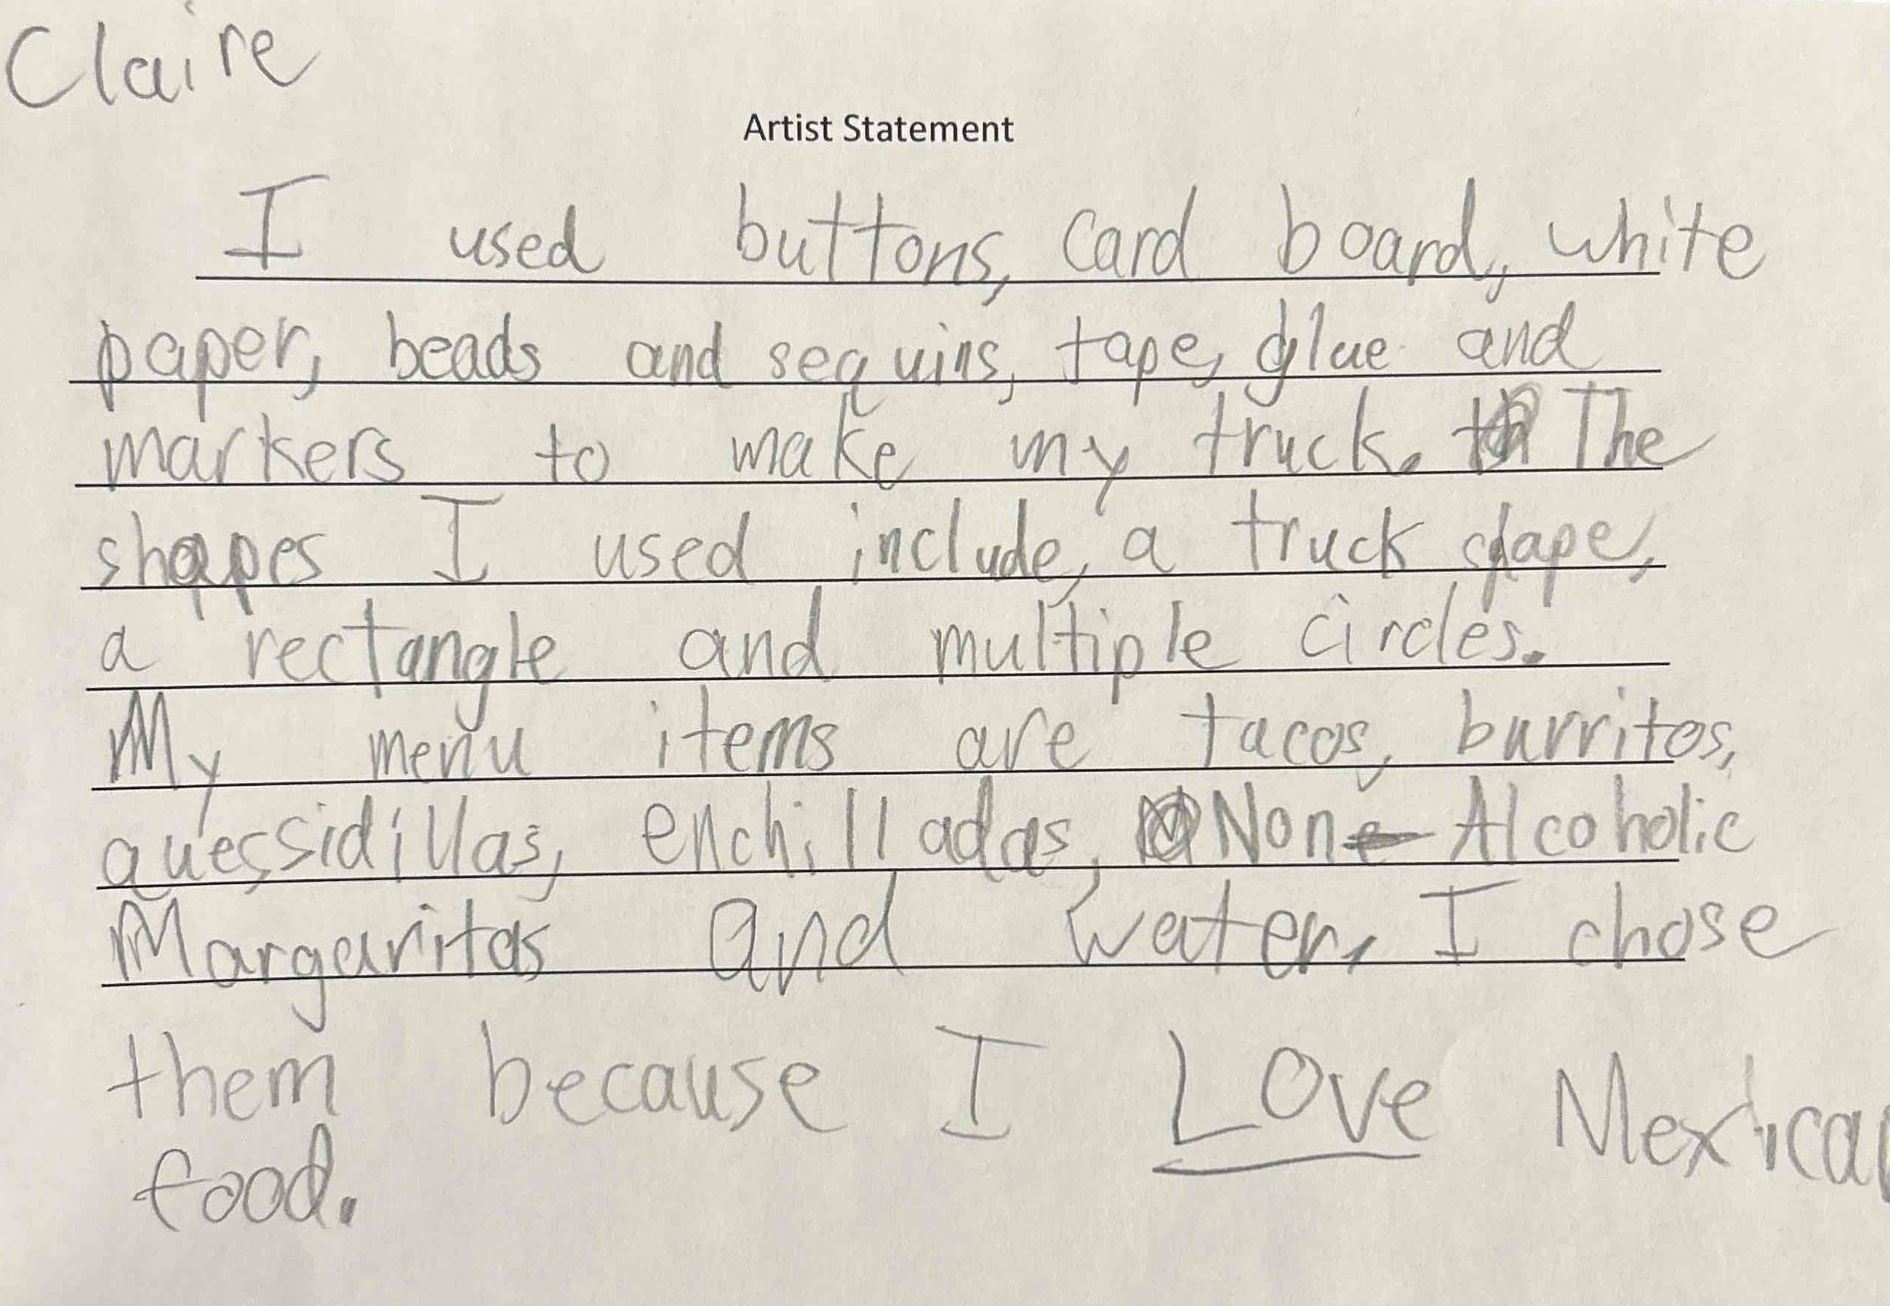 Claire
Artist Statement
I used buttons, card board, white
paper, beads and sequins, tape, glue and
markers to make my truck. The
shapes I used include, a truck shape,
a rectangle and multiple circles.
My menu items are tacos, burritos,
quessidillas, enchilladas, Non-Alcoholic
Margaritas and water. I chose
them because I LOve Mexican
food.